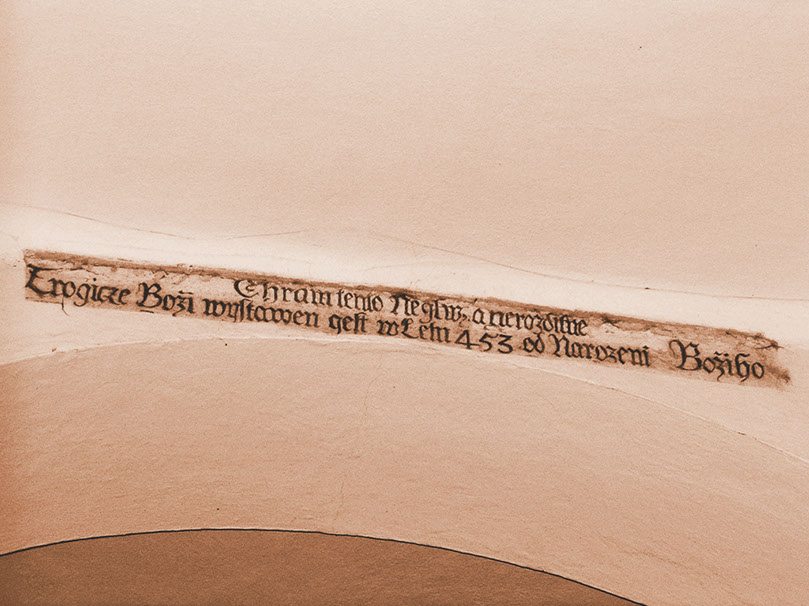 Chrám tento Negſwě. a nerozdílne
Trogicze Boži wyſtawen geſt w Letu 453 od Narozeni Božiho